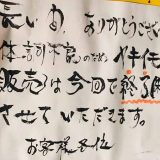 長い間、ありがとうござい
体調不良の為、イ件化
販売は今回で終了
させていただきます。
お客様各位